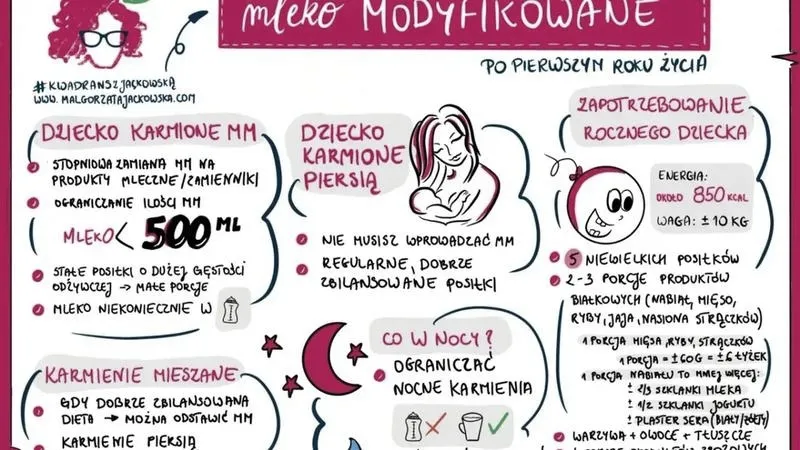 mleko MODYFIKOWANE
PO PIERWSZYM ROKU ŻYCIA
#KWADRANSZJACKOWSKĄ
WWW.MALGORZATAJACKOWSKA.COM
DZIECKO KARMIONE MM
STOPNIOWA ZAMIANA MM NA
PRODUKTY MLECZNE/ZAMIENNIKI
OGRANICZANIE ILOŚCI MM
MLEKO < 500 ML
STAŁE POSIŁKI O DUŻEJ GĘSTOŚCI
ODŻYWCZEJ → MAŁE PORCJE
MLEKO NIEKONIECZNIE W
KARMIENIE MIESZANE
GDY DOBRZE ZBILANSOWANA
DIETA → MOŻNA ODSTAWIĆ MM
KARMIENIE PIERSIĄ
DZIECKO
KARMIONE
PIERSIĄ
NIE MUSISZ WPROWADZAĆ MM
REGULARNE, DOBRZE
ZBILANSOWANE POSIŁKI
CO W NOCY?
OGRANICZAĆ
NOCNE KARMIENIA
ZAPOTRZEBOWANIE
ROCZNEGO DZIECKA
ENERGIA:
OKOŁO 850 KCAL
WAGA: ± 10 KG
5 NIEWIELKICH POSIŁKÓW
2-3 PORCJE PRODUKTÓW
BIAŁKOWYCH (NABIAŁ, MIĘSO,
RYBY, JAJA, NASIONA STRĄCZKÓW)
1 PORCJA MIĘSA, RYBY, STRĄCZKÓW
1 PORCJA = ± 60G = ± 6 ŁYŻEK
1 PORCJA NABIAŁU TO MNIEJ WIĘCEJ:
± 2/3 SZKLANKI MLEKA
± 1/2 SZKLANKI JOGURTU
± PLASTER SERA (BIAŁY/ŻÓŁTY)
WARZYWA + OWOCE + TŁUSZCZE